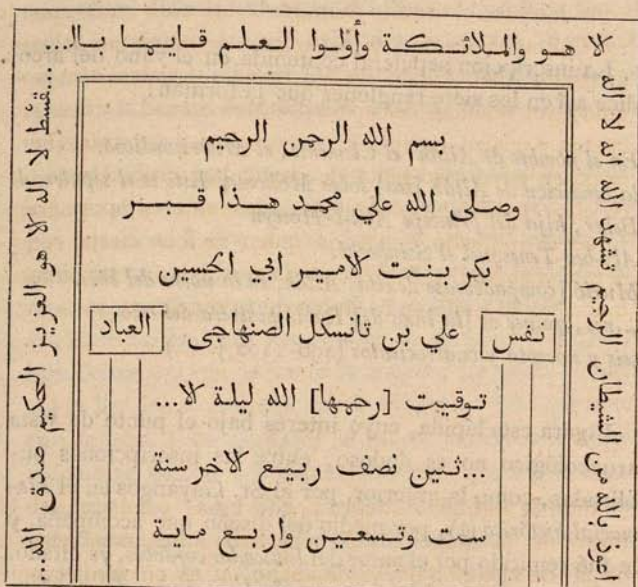 اعوذ بالله من الشيطان الرجيم تشهد الله انه لا اله
لا هو والملائكة وأولوا العلم قايما بالـ...
...ـقسط لا اله لا هو العزيز الحكيم صدق الله...
بسم الله الرحمن الرحيم
وصلى الله علي محمد هذا قبر
بكر بنت لامير ابي الحسين
نفس علي بن تانسكل الصنهاجى العباد
توفيت [رحمها] الله ليلة لا...
...ثنين نصف ربيع لاخر سنة
ست وتسعين واربع ماية